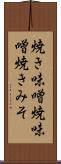 焼き味噌焼味
噌焼きみそ